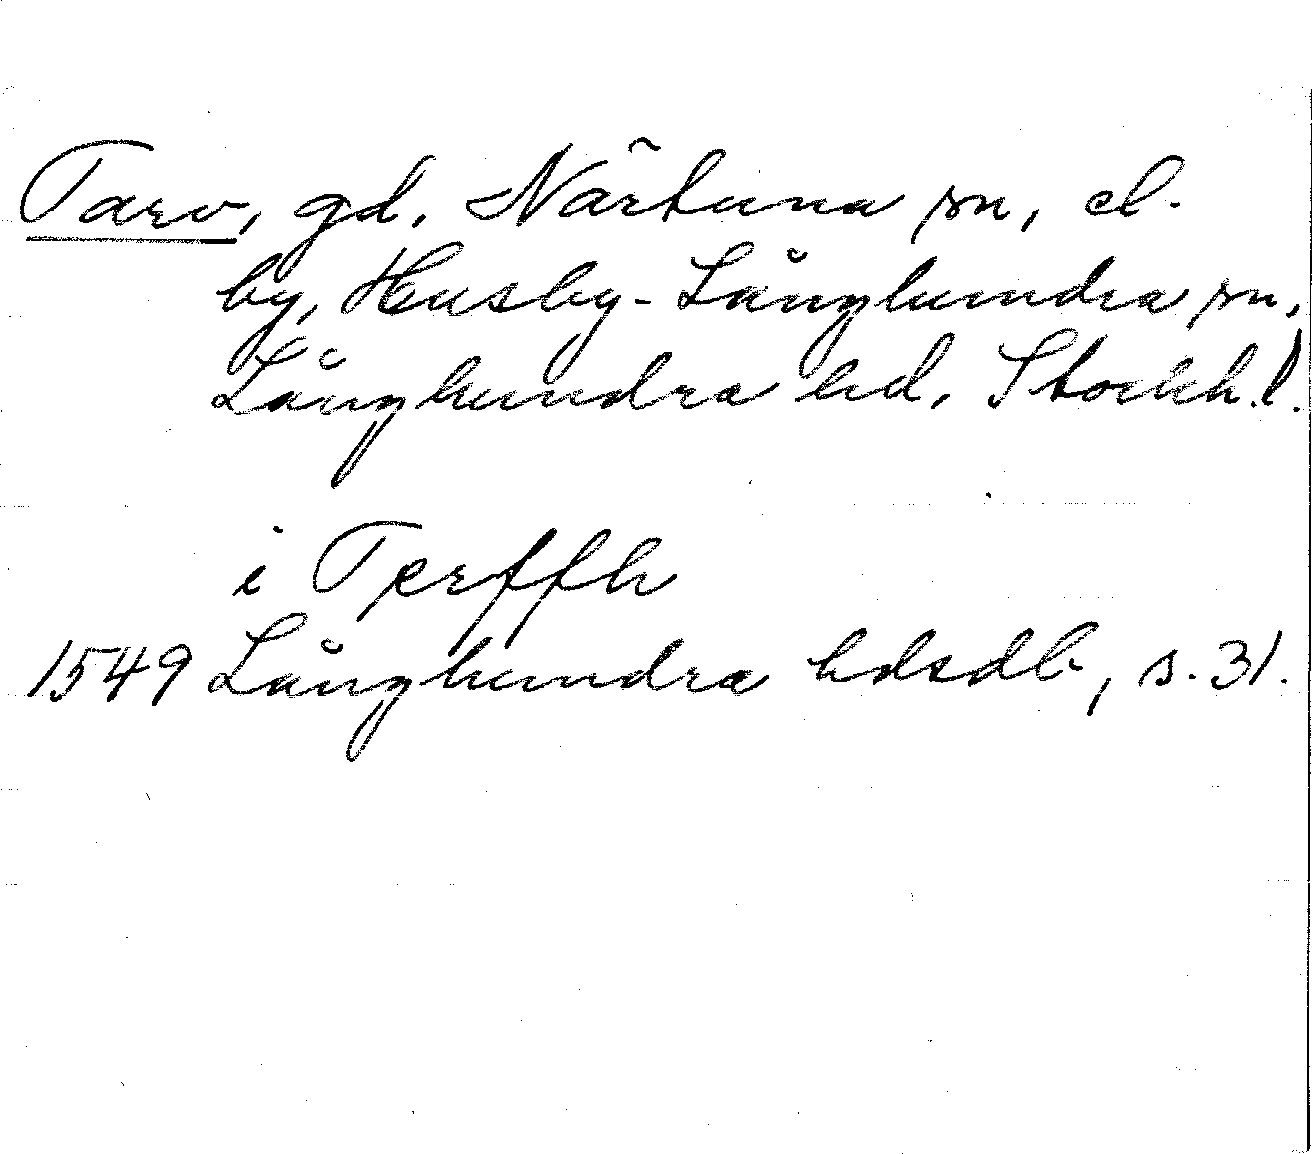 Tarv, gd. Närtuna sn, el.
by, Husby-Långhundra sn,
Långhundra hd. Stockh. l.
i Tęrffh
1549 Långhundra hdsdb, s. 31.